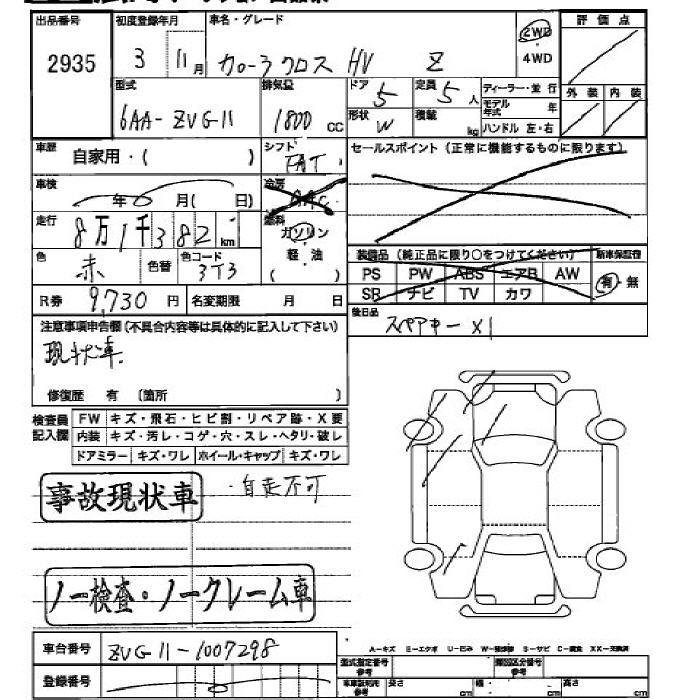 出品番号 初度登録年月 車名・グレード 2WD ・ 4WD 評価点
2935 3 11月 カローラクロス HV Z
型式 排気量 ドア 5 定員 5人 ディーラー・並行 外装 内装
6AA-ZVG11 1800 CC 形状 W 積載 kg モデル年式 年
ハンドル 左・右
車歴 自家用・( ) シフト FAT セールスポイント (正常に機能するものに限ります)
車検 年 月( 日) 冷房 AAC
走行 8万1千382 km 燃料 ガソリン
色 赤 色替 色コード 3T3 軽・油 ( )
装備品 (純正品に限り○をつけてください) 新車保証書
PS PW ABS エアB AW 有・無
SR ナビ TV カワ
R券 9,730 円 名変期限 月 日
後日品
スペアキー X1
注意事項申告欄 (不具合内容等は具体的に記入して下さい)
現状車
修復歴 有 〔箇所 〕
検査員記入欄 FW キズ・飛石・ヒビ割・リペア跡・X要
内装 キズ・汚レ・コゲ・穴・スレ・ヘタリ・破レ
ドアミラー キズ・ワレ ホイール・キャップ キズ・ワレ
事故現状車 ・自走不可
ノー検査・ノークレーム車
車台番号 ZVG11-1007298
登録番号
A-キズ E-エクボ U-凹み S-サビ C-腐食 XX-交換済
型式指定番号 参考 類別区分番号 参考
長さ cm 幅 cm 高さ cm